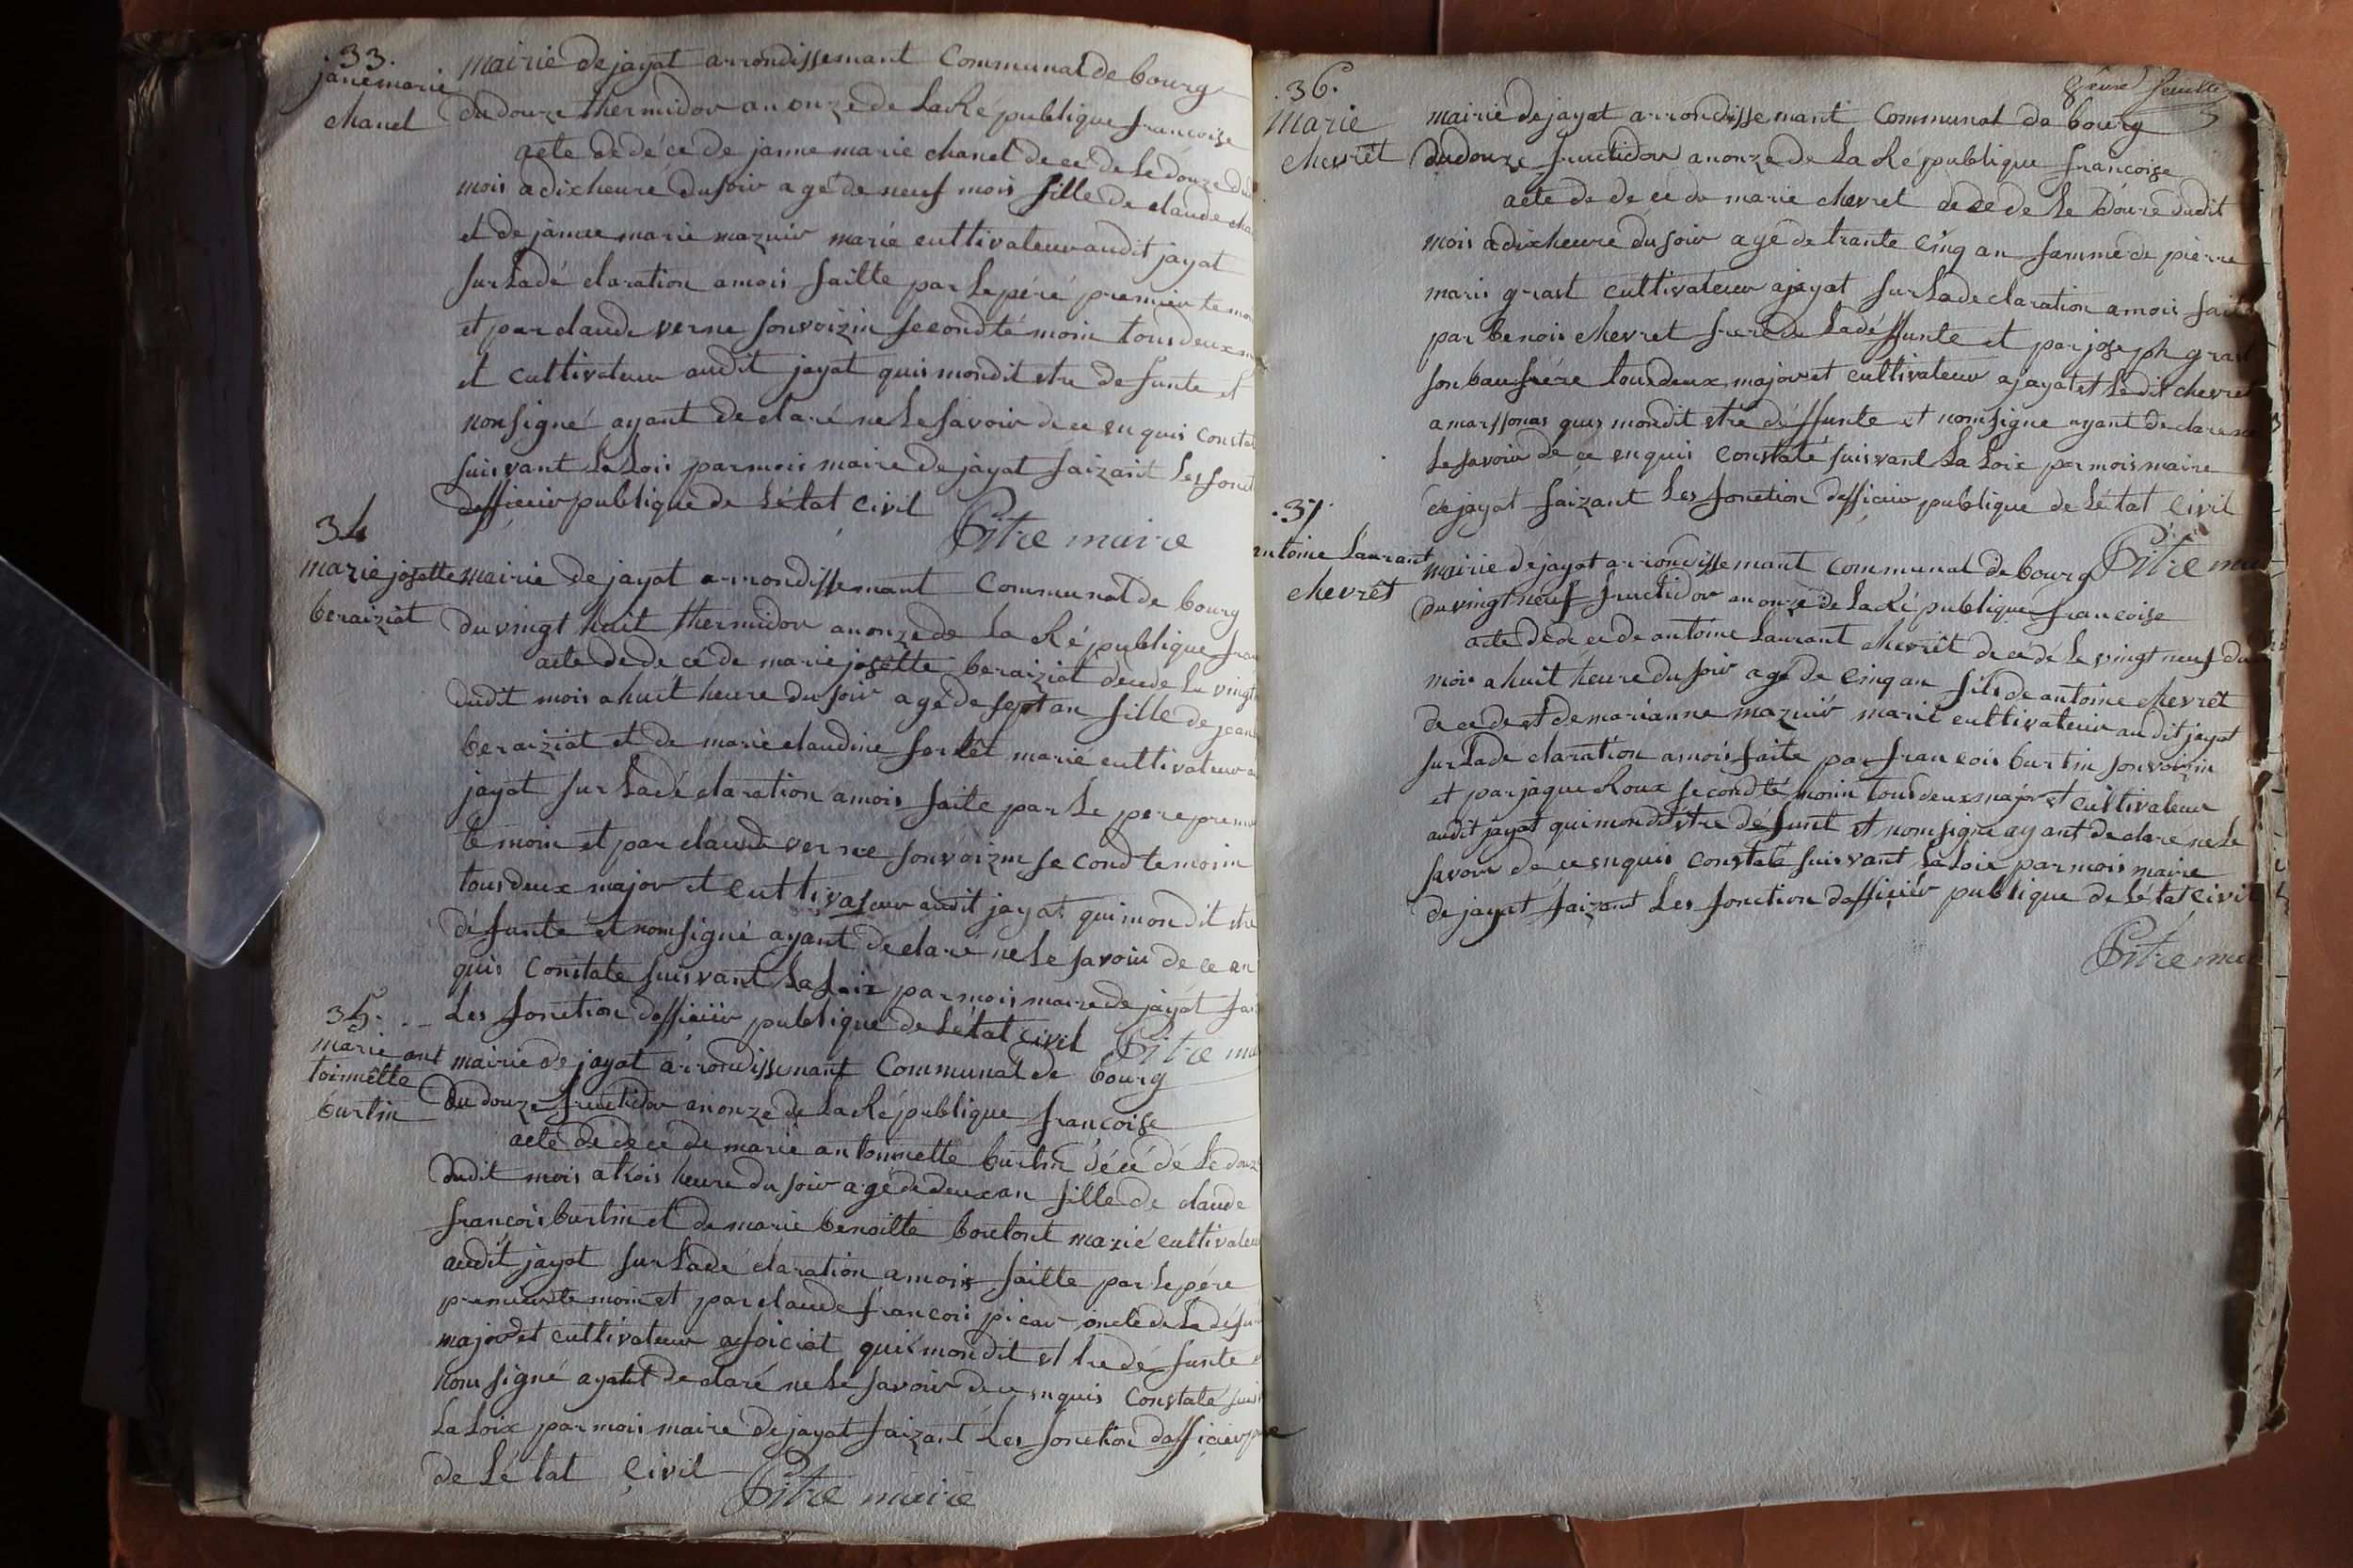 .33.
janemarie
chanel
mairie de jayat arrondissemant Communal de bourg
du douze thermidor an onze de La Ré publique francoise
acte de dé cé de janne marie chanel de ce de Le douze du
mois a dix heure du soir agé de neuf mois fille de claude
et de janne marie mazuir marié cultivateur audit jayat
sur La dé claration a mois faitte par Le péré premier te
et par claude verne son voizin second té moin tous deux
et cultivateur audit jayat quis mondit etre defunte et
non signé ayant de claré ne Le savoir de ce en quis
suivant La Lois par mois maire de jayat faizant Les
dofficier publique de Létat Civil
Pitre maire
34
marie josette
beraiziat
mairie de jayat arrondissemant Communal de bourg
du vingt huit thermidor an onze de La Ré publique
acte de de cé de marie josette beraiziat decede Le
dudit mois a huit heure du soir agé de sept an fille de
beraiziat et de marie claudine ferlêt marié cultivateur
jayat sur La dé claration a mois faite par Le pere
té moin et par claude verne son voizin se cond temoin
tous deux major et cultivateur audit jayat qui mon dit etre
défunte et nom signé ayant de clare ne Le savoir de ce en
quis Constate suisvant La Loix par mois maire de jayat
Les fonction dofficier publique de Létat civil Pitre
35.
marie ant
toinnêtte
burtin
mairie de jayat arrondissemant Communal de bourg
Du douze fructidor an onze de La Ré publique francoise
acte de dé cé de marie antoinnette burtin dé cé dé Le
dudit mois a trois heure du soir agé de deux an fille de claude
françois burtin et de marie benoitte bontont marié
audit jayat sur La dé claration a mois faitte par Le pére
premier te moin et par claude francois picar oncle de La
major et cultivateur a foiciat qui mon dit et tre dé funte
nom signé ayant de claré ne Le savoir de ce en quis Constaté
La Loix par mois maire de jayat faizant Les fonction dofficier
de Lé tat Civil
Pitre maire
8eme feuille
.36.
Marie
chevrêt
mairie de jayat arrondissemant Communal de bourg
du douze fructidor an onze de La Ré publique francoise
acte de de ce de marie chevret de ce de Le douze dudit
mois a dix heure du soir agé de trante cinq an famme de pierre
maris grast cultivateur a jayat sur La declaration a mois faite
par benois chevret frere de La déffunte et par joseph
son bau frére tous deux major et cultivateur a jayat et Le dit chevret
a marssonas quis mondit etre déffunte et nom signe ayant de clare ne
Le savoir de ce en quis Constaté suisvant La Loix par mois maire
de jayat faizant Les fonction dofficier publique de Létat Civil
Pitre
.37.
antoine Laurant
chevrêt
mairie de jayat arrondissemant communal de bourg
du vingt neuf fructidor an onze de La Ré publique francoise
acte de de ce de antoine Laurant chevrêt de cé dé Le vingt neuf du
mois a huit heure du soir agé de cinq an fils de antoine chevrêt
de ce de et de marianne mazuir marié cultivateur au dit jayat
sur La dé claration a mois faite par francois burtin son voizin
et par jaque Roux se cond té moin tous deux major et cultivateur
audit jayat qui mondit etre défunt et nom signe ay ant de claré ne Le
savoir de ce en quis constaté suisvant La Loix par mois maire
de jayat faizant Les fonction dofficiér publique de Létat Civil
Pitre